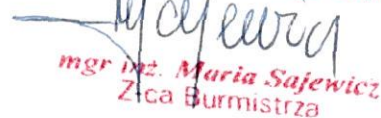 mgr inż. Maria Sajewicz
Z-ca Burmistrza